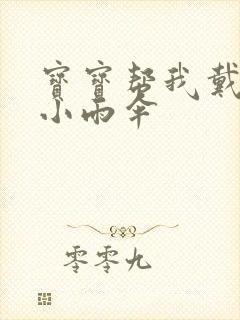 寶寶幫我戴
小雨伞
零零九